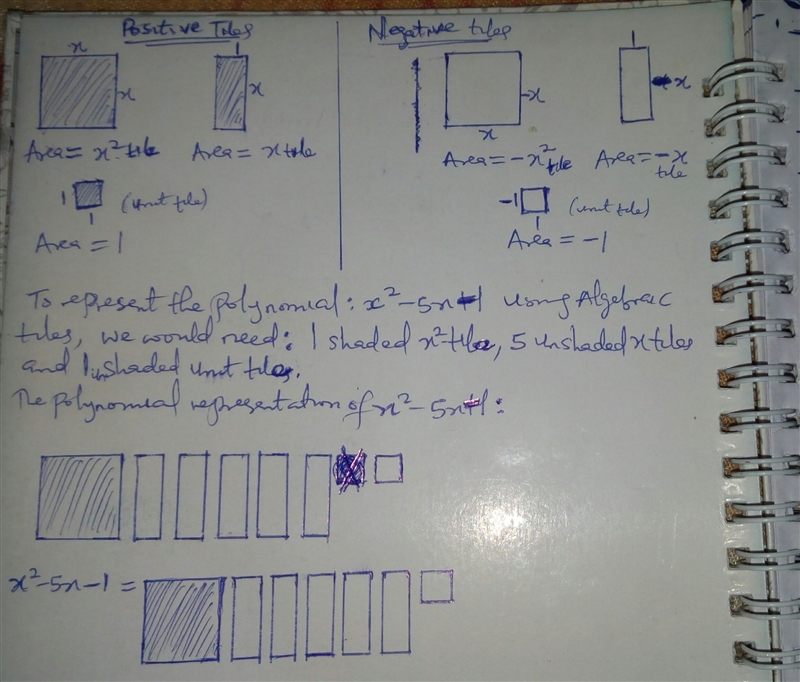 Positive Tiles
Negative tiles
x
1
x
x
Area = x² tile
Area = x tile
1
1
(unit tile)
Area = 1
1
x
x
x
Area = -x² tile
Area = -x
tile
-1
1
(unit tile)
Area = -1
To represent the polynomial: x² - 5x - 1 using Algebraic
tiles, we would need: 1 shaded x² tile, 5 unshaded x tiles
and 1 unshaded unit tiles.
The polynomial representation of x² - 5x - 1:
x² - 5x - 1 =